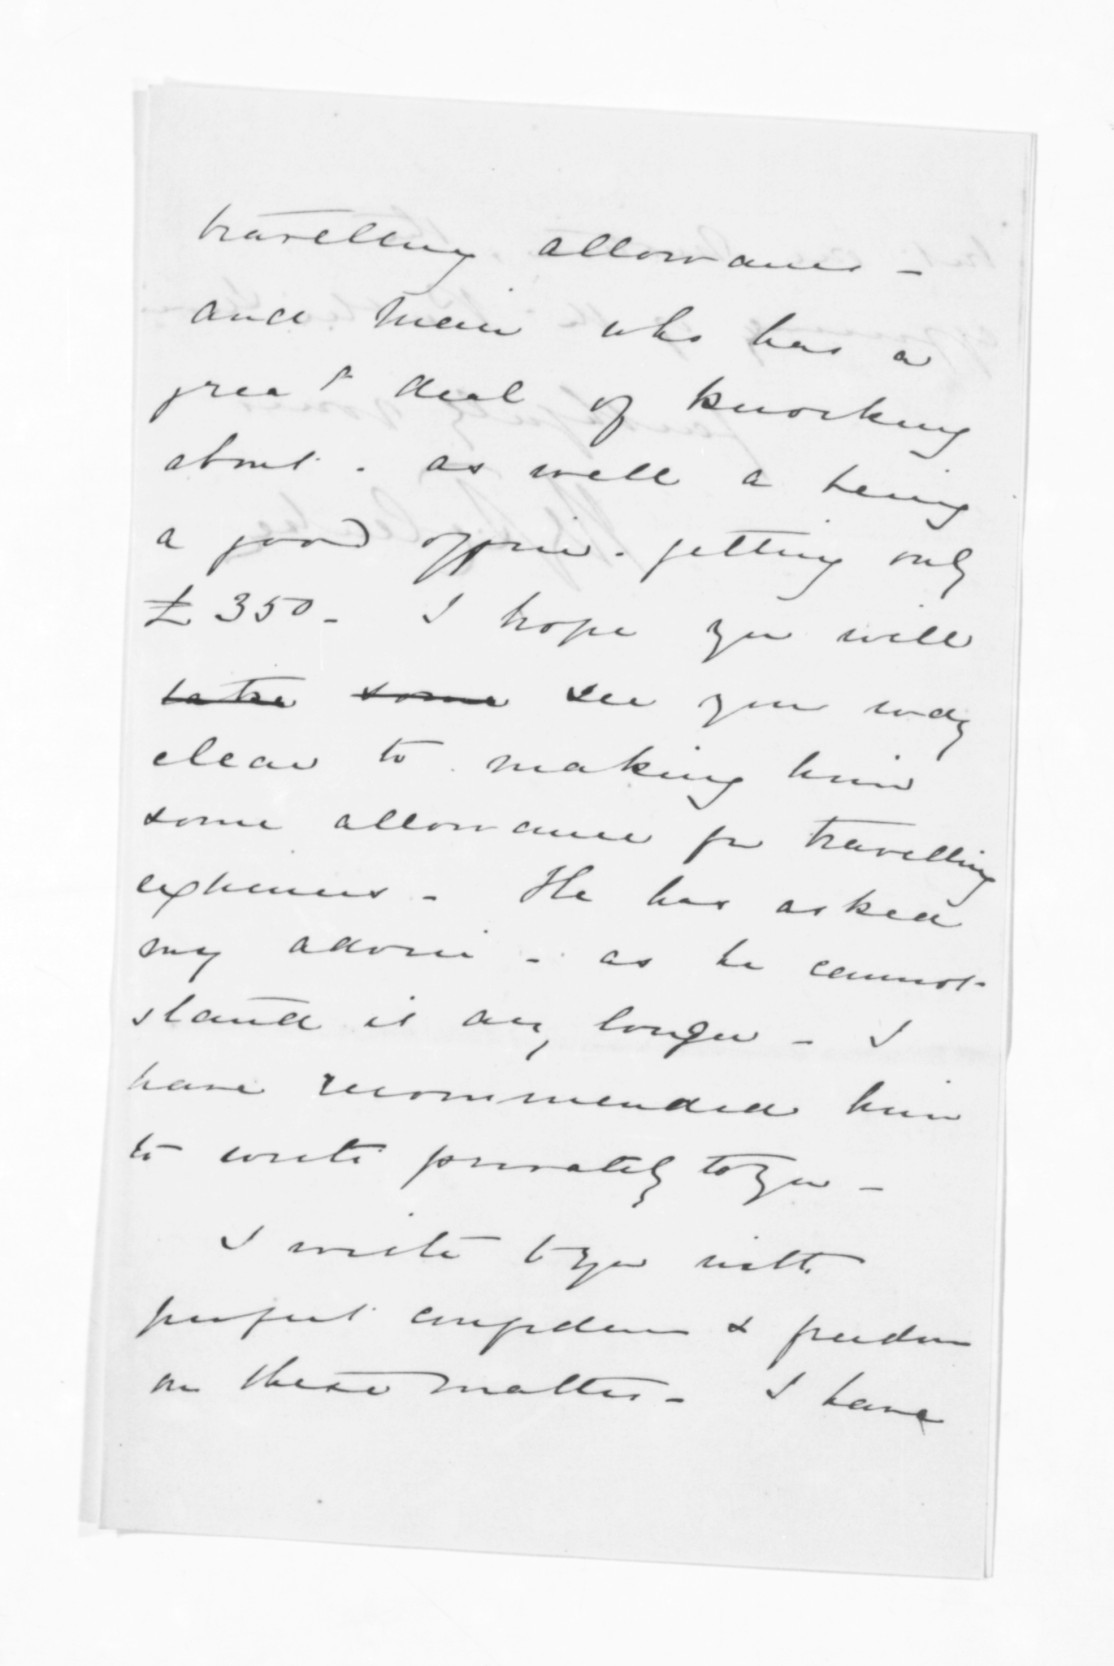 travelling allowance -
and Mair who has a
great deal of knocking
about . as well a being
a good officer . getting only
£350 - I hope you will
take some see your way
clear to making him
some allowance for travelling
expenses - He has asked
my advice - as he cannot
stand it any longer - I
have recommended him
to write privately to you -
I write to you with
perfect confidence & freedom
on these matters - I have